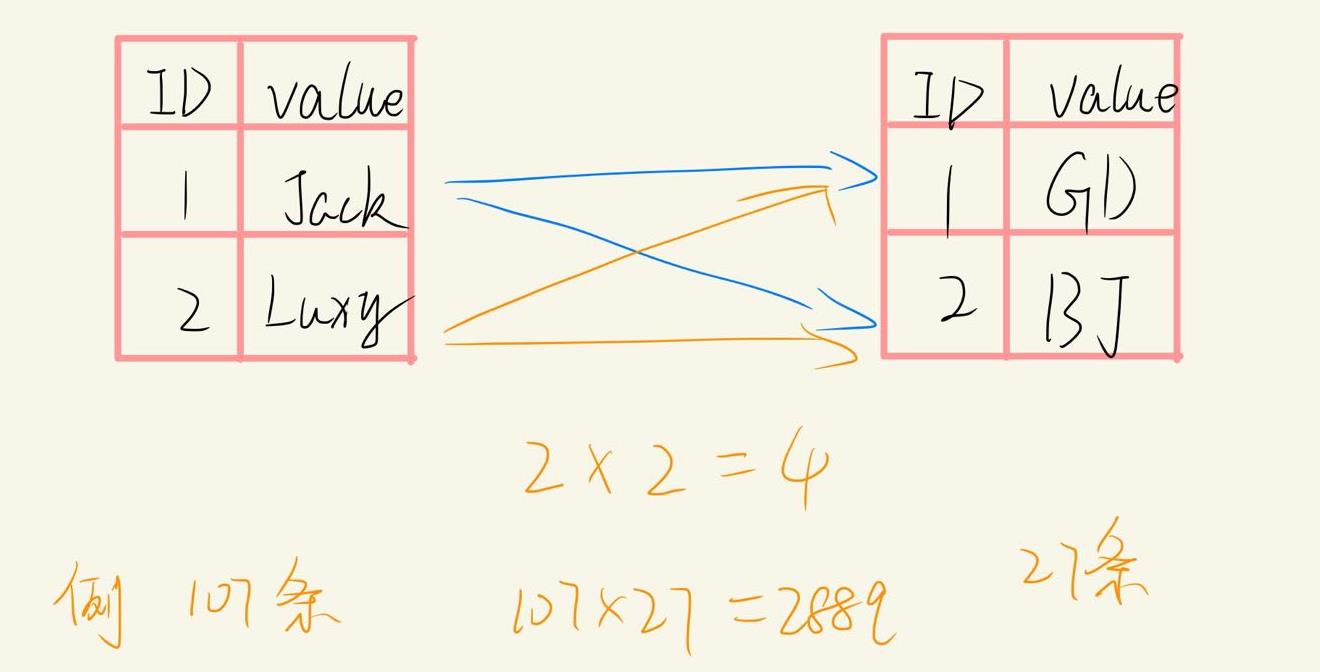 ID value
1 Jack
2 Luxy
ID value
1 GD
2 BJ
2 × 2 = 4
例 107条
107×27 = 2889
27条